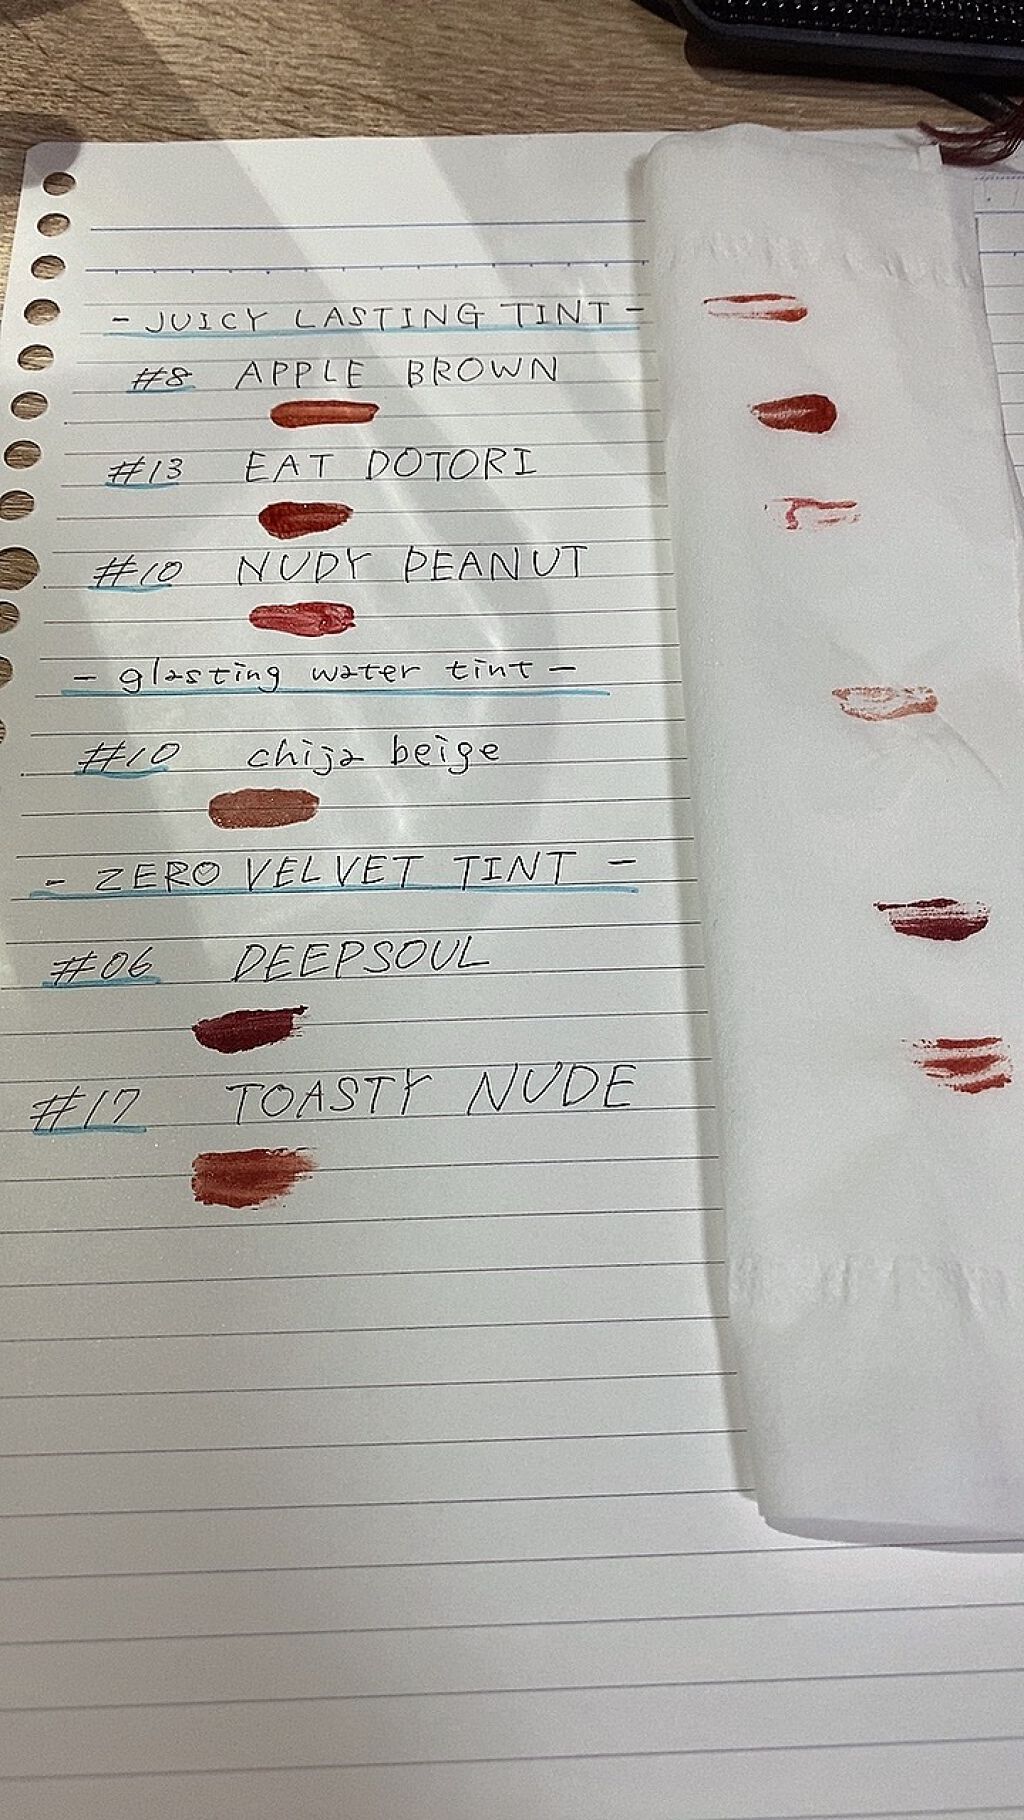 - JUICY LASTING TINT -
#8 APPLE BROWN
#13 EAT DOTORI
#10 NUDY PEANUT
- glasting water tint -
#10 chija beige
- ZERO VELVET TINT -
#06 DEEPSOUL
#17 TOASTY NUDE